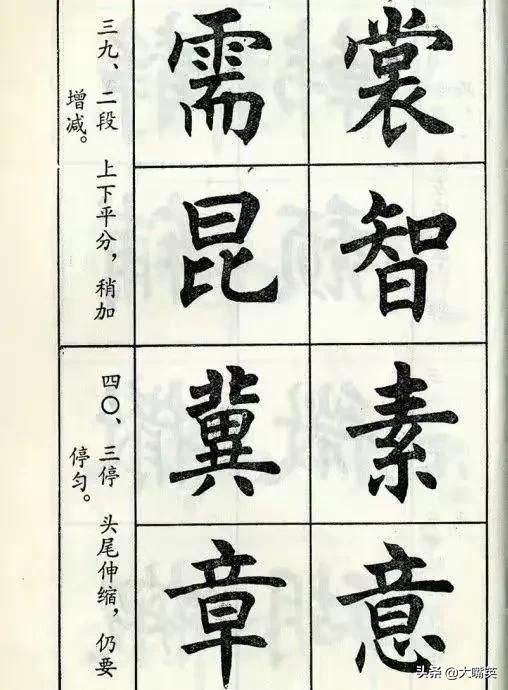 三九、二段 上下平分，稍加
增减。
裳 需
智 昆
四〇、三停 头尾伸缩，仍要
停匀。
素 冀
意 章
头条 @大嘴英